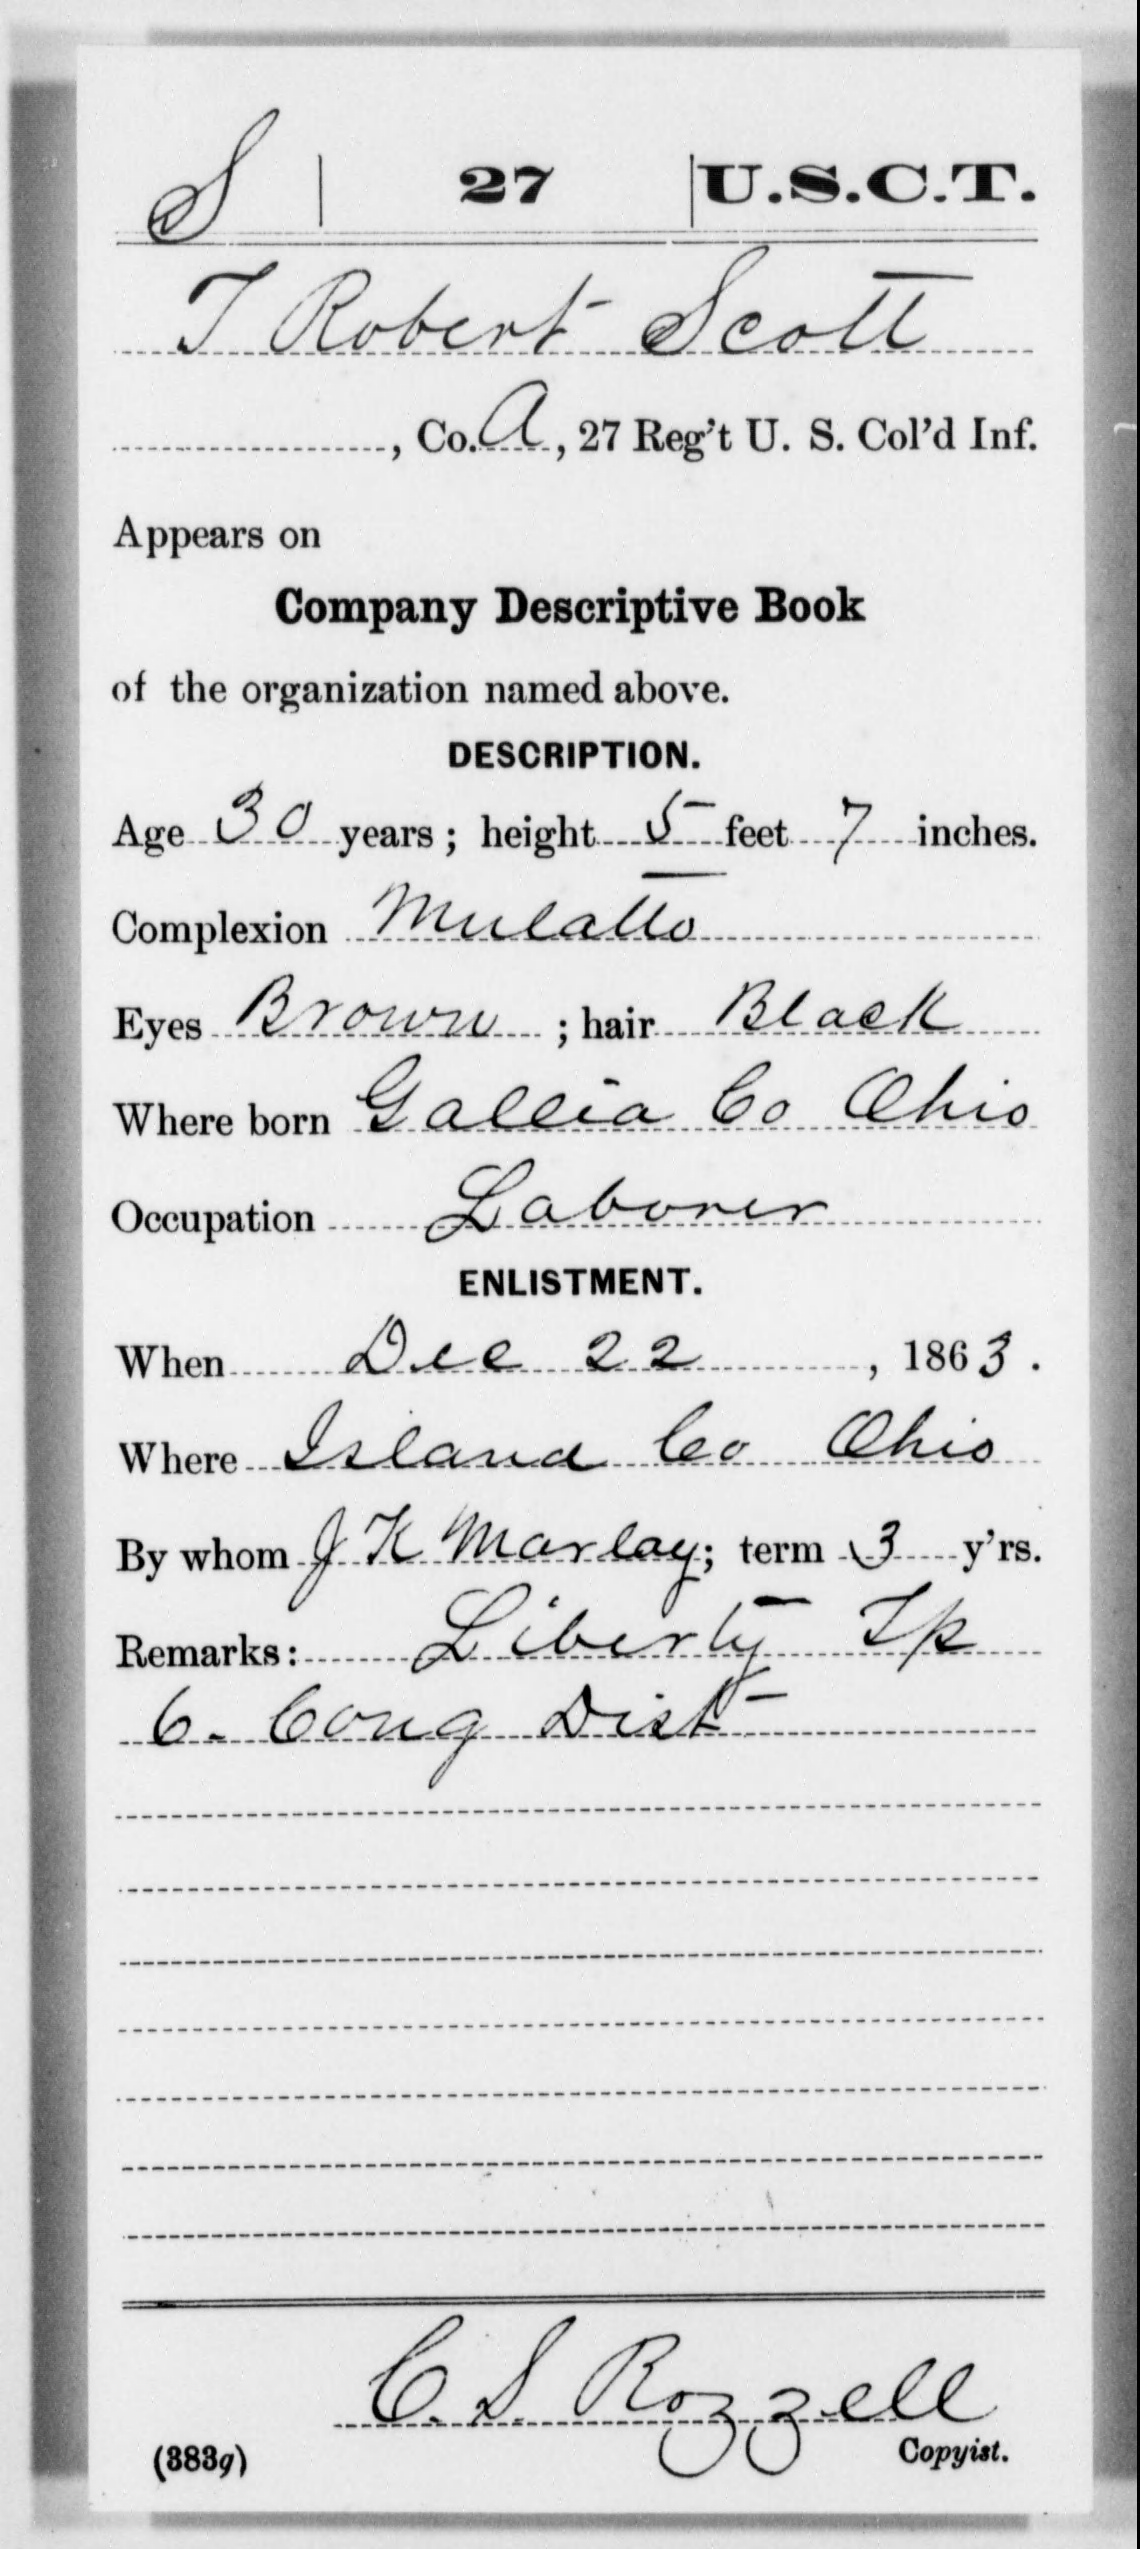 S | 27 | U.S.C.T.
T Robert Scott
, Co. A, 27 Reg't U. S. Col'd Inf.
Appears on
Company Descriptive Book
of the organization named above.
DESCRIPTION.
Age 30 years; height 5 feet 7 inches.
Complexion Mulatto
Eyes Brown; hair Black
Where born Gallia Co Ohio
Occupation Laborer
ENLISTMENT.
When Dec 22, 1863.
Where Island Co Ohio
By whom J K Marlay; term 3 y'rs.
Remarks: Liberty Tp
6. Cong Dist
C. S. Rozzell
(383g) Copyist.